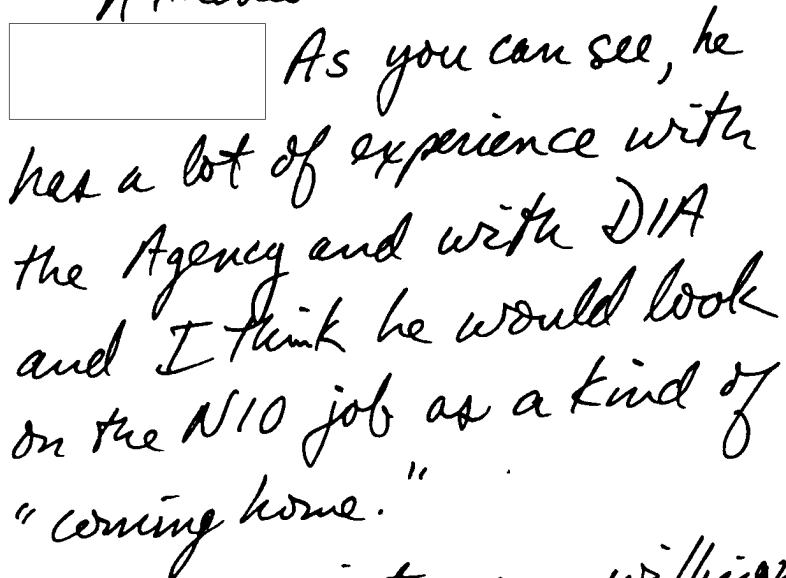 As you can see, he
has a lot of experience with
the Agency and with DIA
and I think he would look
on the NIO job as a kind of
"coming home."